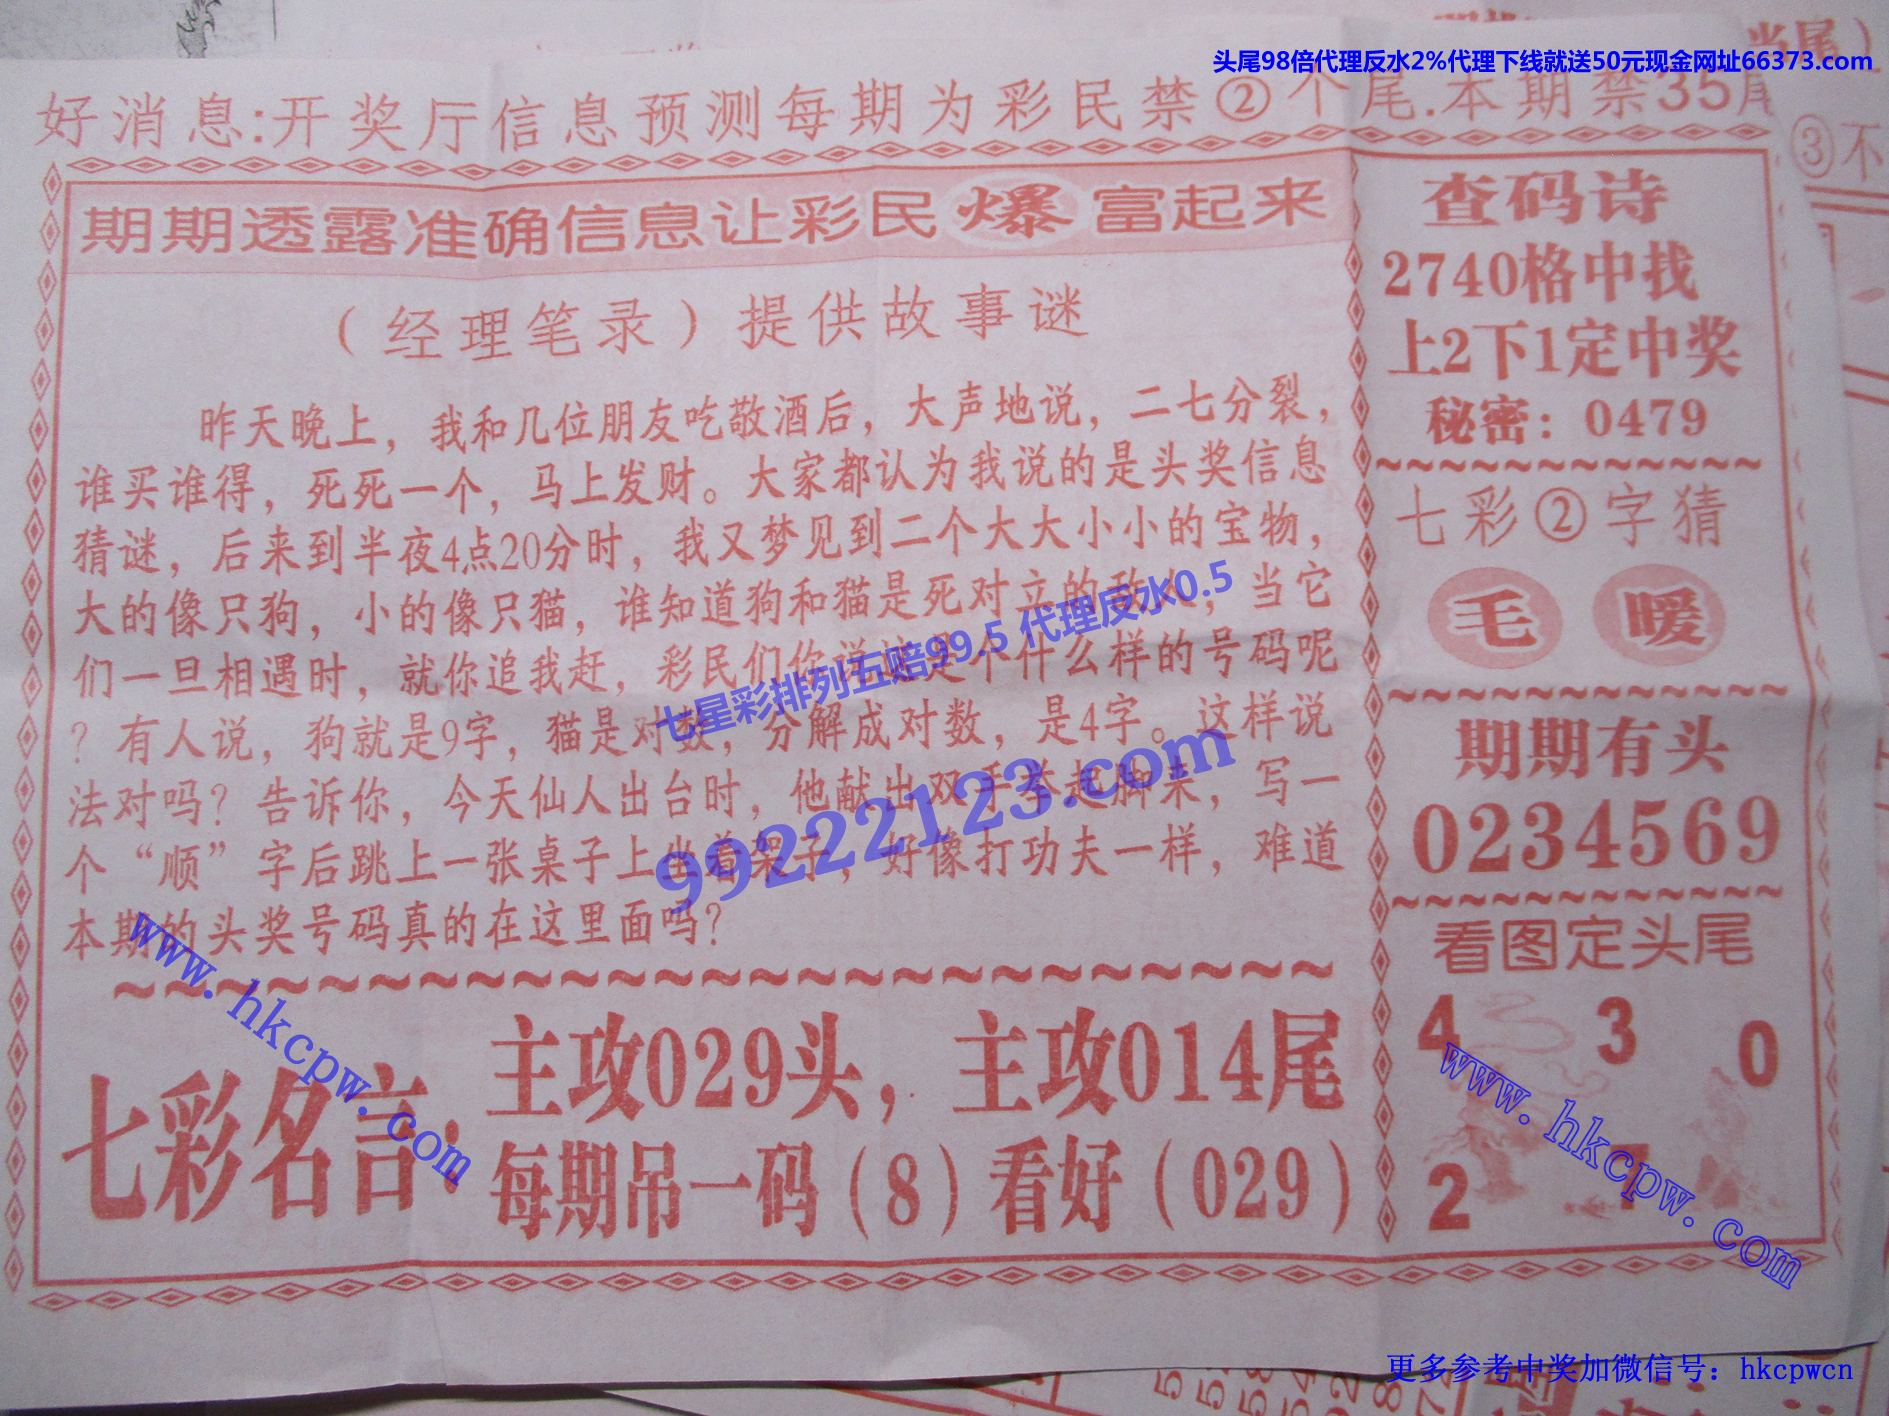 头尾98倍代理反水2%代理下线就送50元现金网址66373.com
当尾）
好消息:开奖厅信息预测每期为彩民禁②个尾.本期禁35尾
③不
期期透露准确信息让彩民爆富起来
（经理笔录）提供故事谜
昨天晚上，我和几位朋友吃敬酒后，大声地说，二七分裂，
谁买谁得，死死一个，马上发财。大家都认为我说的是头奖信息
猜谜，后来到半夜4点20分时，我又梦见到二个大大小小的宝物，
大的像只狗，小的像只猫，谁知道狗和猫是死对立的敌人，当它
们一旦相遇时，就你追我赶，彩民们你说这是个什么样的号码呢
？有人说，狗就是9字，猫是对数，分解成对数，是4字。这样说
法对吗？告诉你，今天仙人出台时，他献出双手举起脚来，写一
个“顺”字后跳上一张桌子上坐着架子，好像打功夫一样，难道
本期的头奖号码真的在这里面吗？
七星彩排列五赔99.5 代理反水0.5
99222123.com
www.hkcpw.com
七彩名言:
主攻029头，主攻014尾
每期吊一码（8）看好（029）
查码诗
2740格中找
上2下1定中奖
秘密：0479
七彩②字猜
毛 暖
期期有头
0234569
看图定头尾
4 3 0
2 1
www.hkcpw.com
更多参考中奖加微信号：hkcpwcn